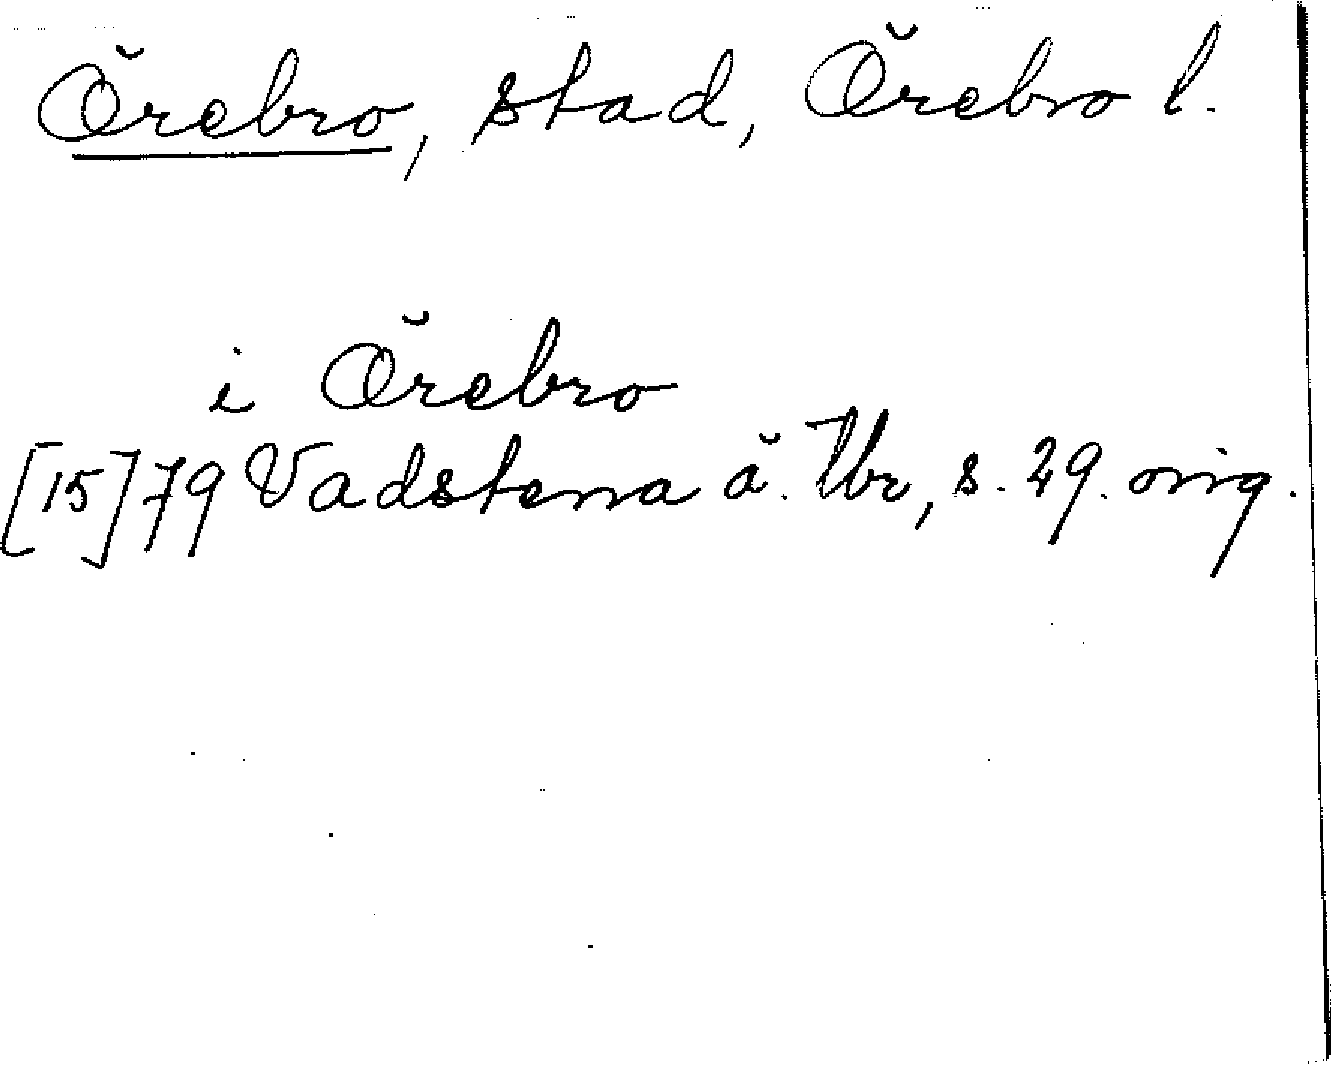 Örebro, stad, Örebro l.
i Örebro
[15]79 Vadstena ä. Tbr, s. 29. orig.